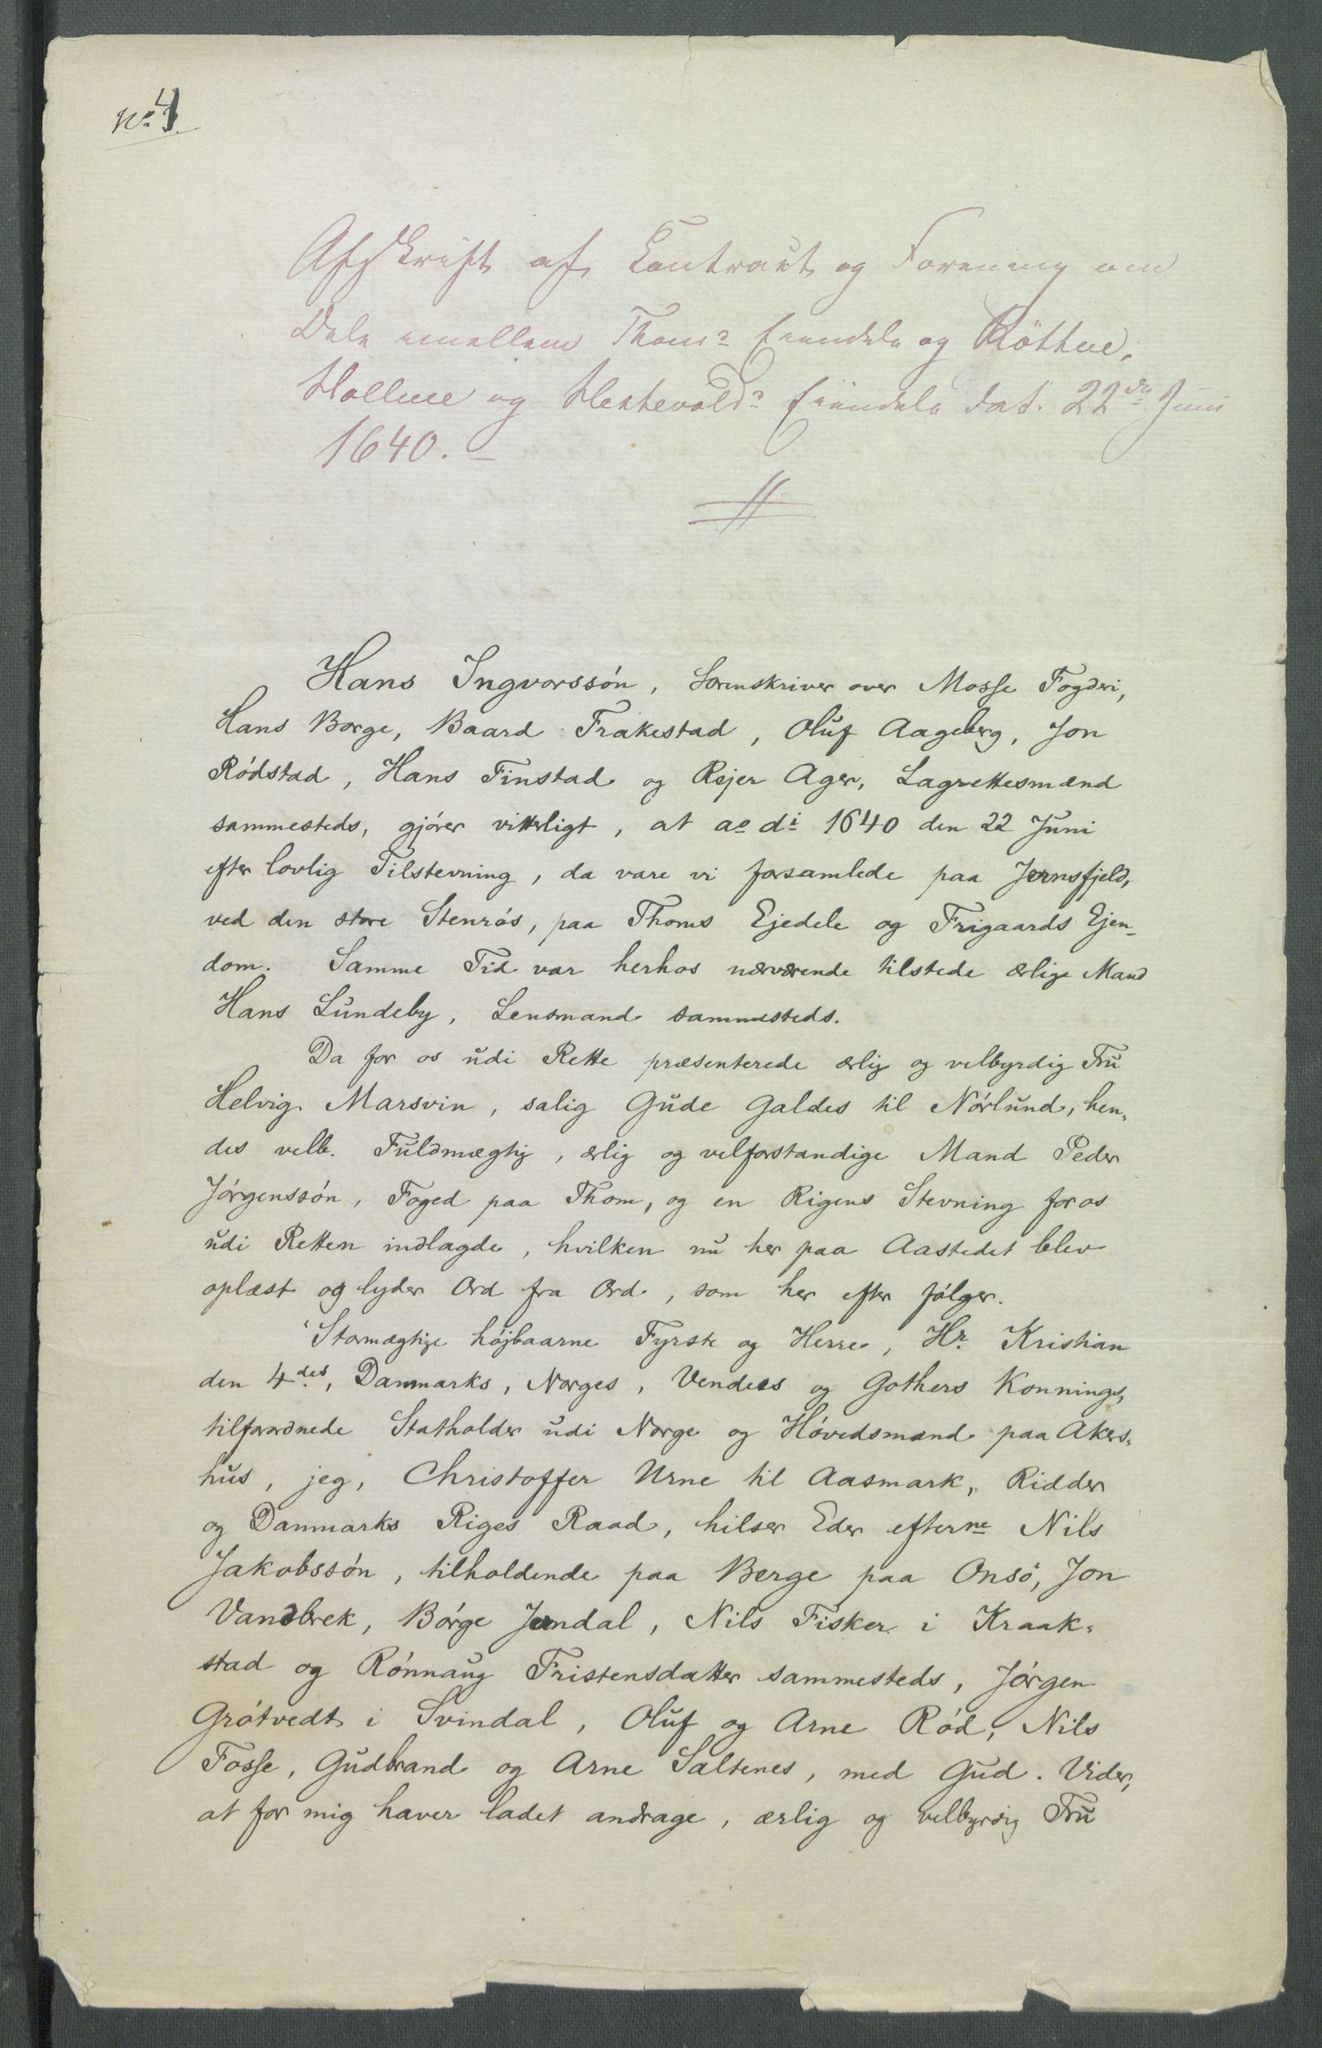 No 4.
Afskrift af Contract og Forening om
Dele imellem Thoms Eiendele og Röttne,
Hollene og Hestevolds Eiendele dat. 22de Juni
1640.
Hans Ingvorssön, Sorenskriver over Mosse Fogderi,
Hans Borge, Baard Frakestad, Oluf Aageberg, Jon
Rödstad, Hans Finstad og Rejer Ager, Lagrettesmænd
sammesteds, gjörer vitterligt, at ao di 1640 den 22 Juni
efter lovlig Tilstevning, da vare vi forsamlede paa Jernsfjeld,
ved den store Stenrös, paa Thoms Ejedele og Frigaards Ejen-
dom. Samme Tid var herhos nærværende tilstede ærlige Mand
Hans Lundeby, Lensmand sammesteds.
Da for os udi Rette præsenterede ærlig og velbyrdig Fru
Helvig Marsvin, salig Gude Galdes til Nörlund, hen-
des velb. Fuldmægtig, ærlig og velforstandige Mand Peder
Jörgenssön, Foged paa Thom, og en Rigens Stevning for os
udi Retten indlagde, hvilken nu her paa Aastedet blev
oplæst og lyder Ord fra Ord, som her efter fölger.
"Stormægtige höjbaarne Fyrste og Herre, Hr. Kristian
den 4des, Danmarks, Norges, Vendes og Gothers Konnings,
tilforordnede Statholder udi Norge og Hövedsmand paa Akers-
hus, jeg, Christoffer Urne til Aasmark, Ridder
og Danmarks Riges Raad, hilser Eder efterne Nils
Jakobssön, tilholdende paa Berge paa Onsö, Jon
Vandbrek, Börge Jondal, Nils Fisker i Kraak-
stad og Rönnaug Fristensdatter sammesteds, Jörgen
Grötvedt i Svindal, Oluf og Arne Röd, Nils
Fosse, Gudbrand og Arne Saltenes, med Gud. Vider,
at for mig haver ladet andrage, ærlig og velbyrdig Fru